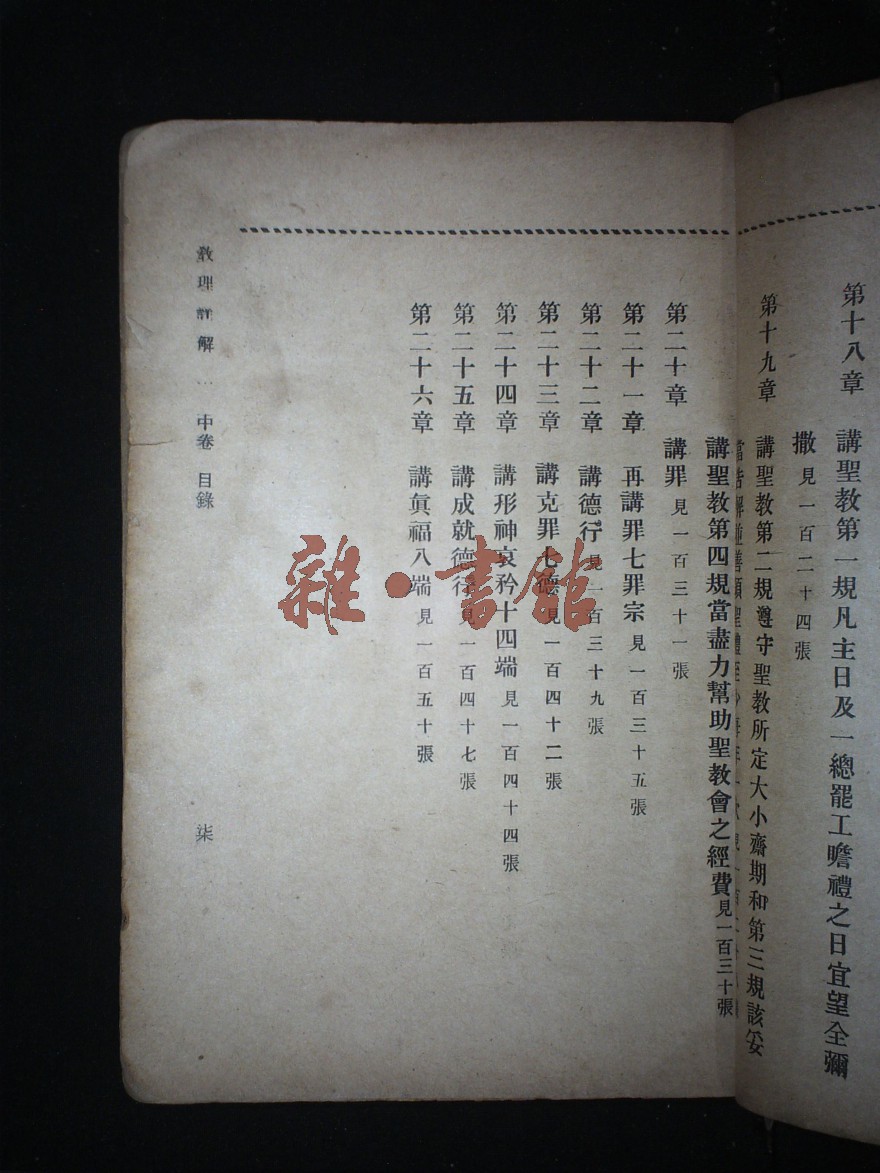 第十八章 講聖教第一規凡主日及一總罷工瞻禮之日宜望全彌
撒見一百二十四張
第十九章 講聖教第二規遵守聖教所定大小齋期和第三規該妥
當告解並善領聖體至少每年一次
講聖教第四規當盡力幫助聖教會之經費見一百三十張
第二十章 講罪見一百三十一張
第二十一章 再講罪七罪宗見一百三十五張
第二十二章 講德行見一百三十九張
第二十三章 講克罪七德見一百四十二張
第二十四章 講形神哀矜十四端見一百四十四張
第二十五章 講成就德行見一百四十七張
第二十六章 講眞福八端見一百五十張
教理詳解 中卷 目錄 柒
雜·書館